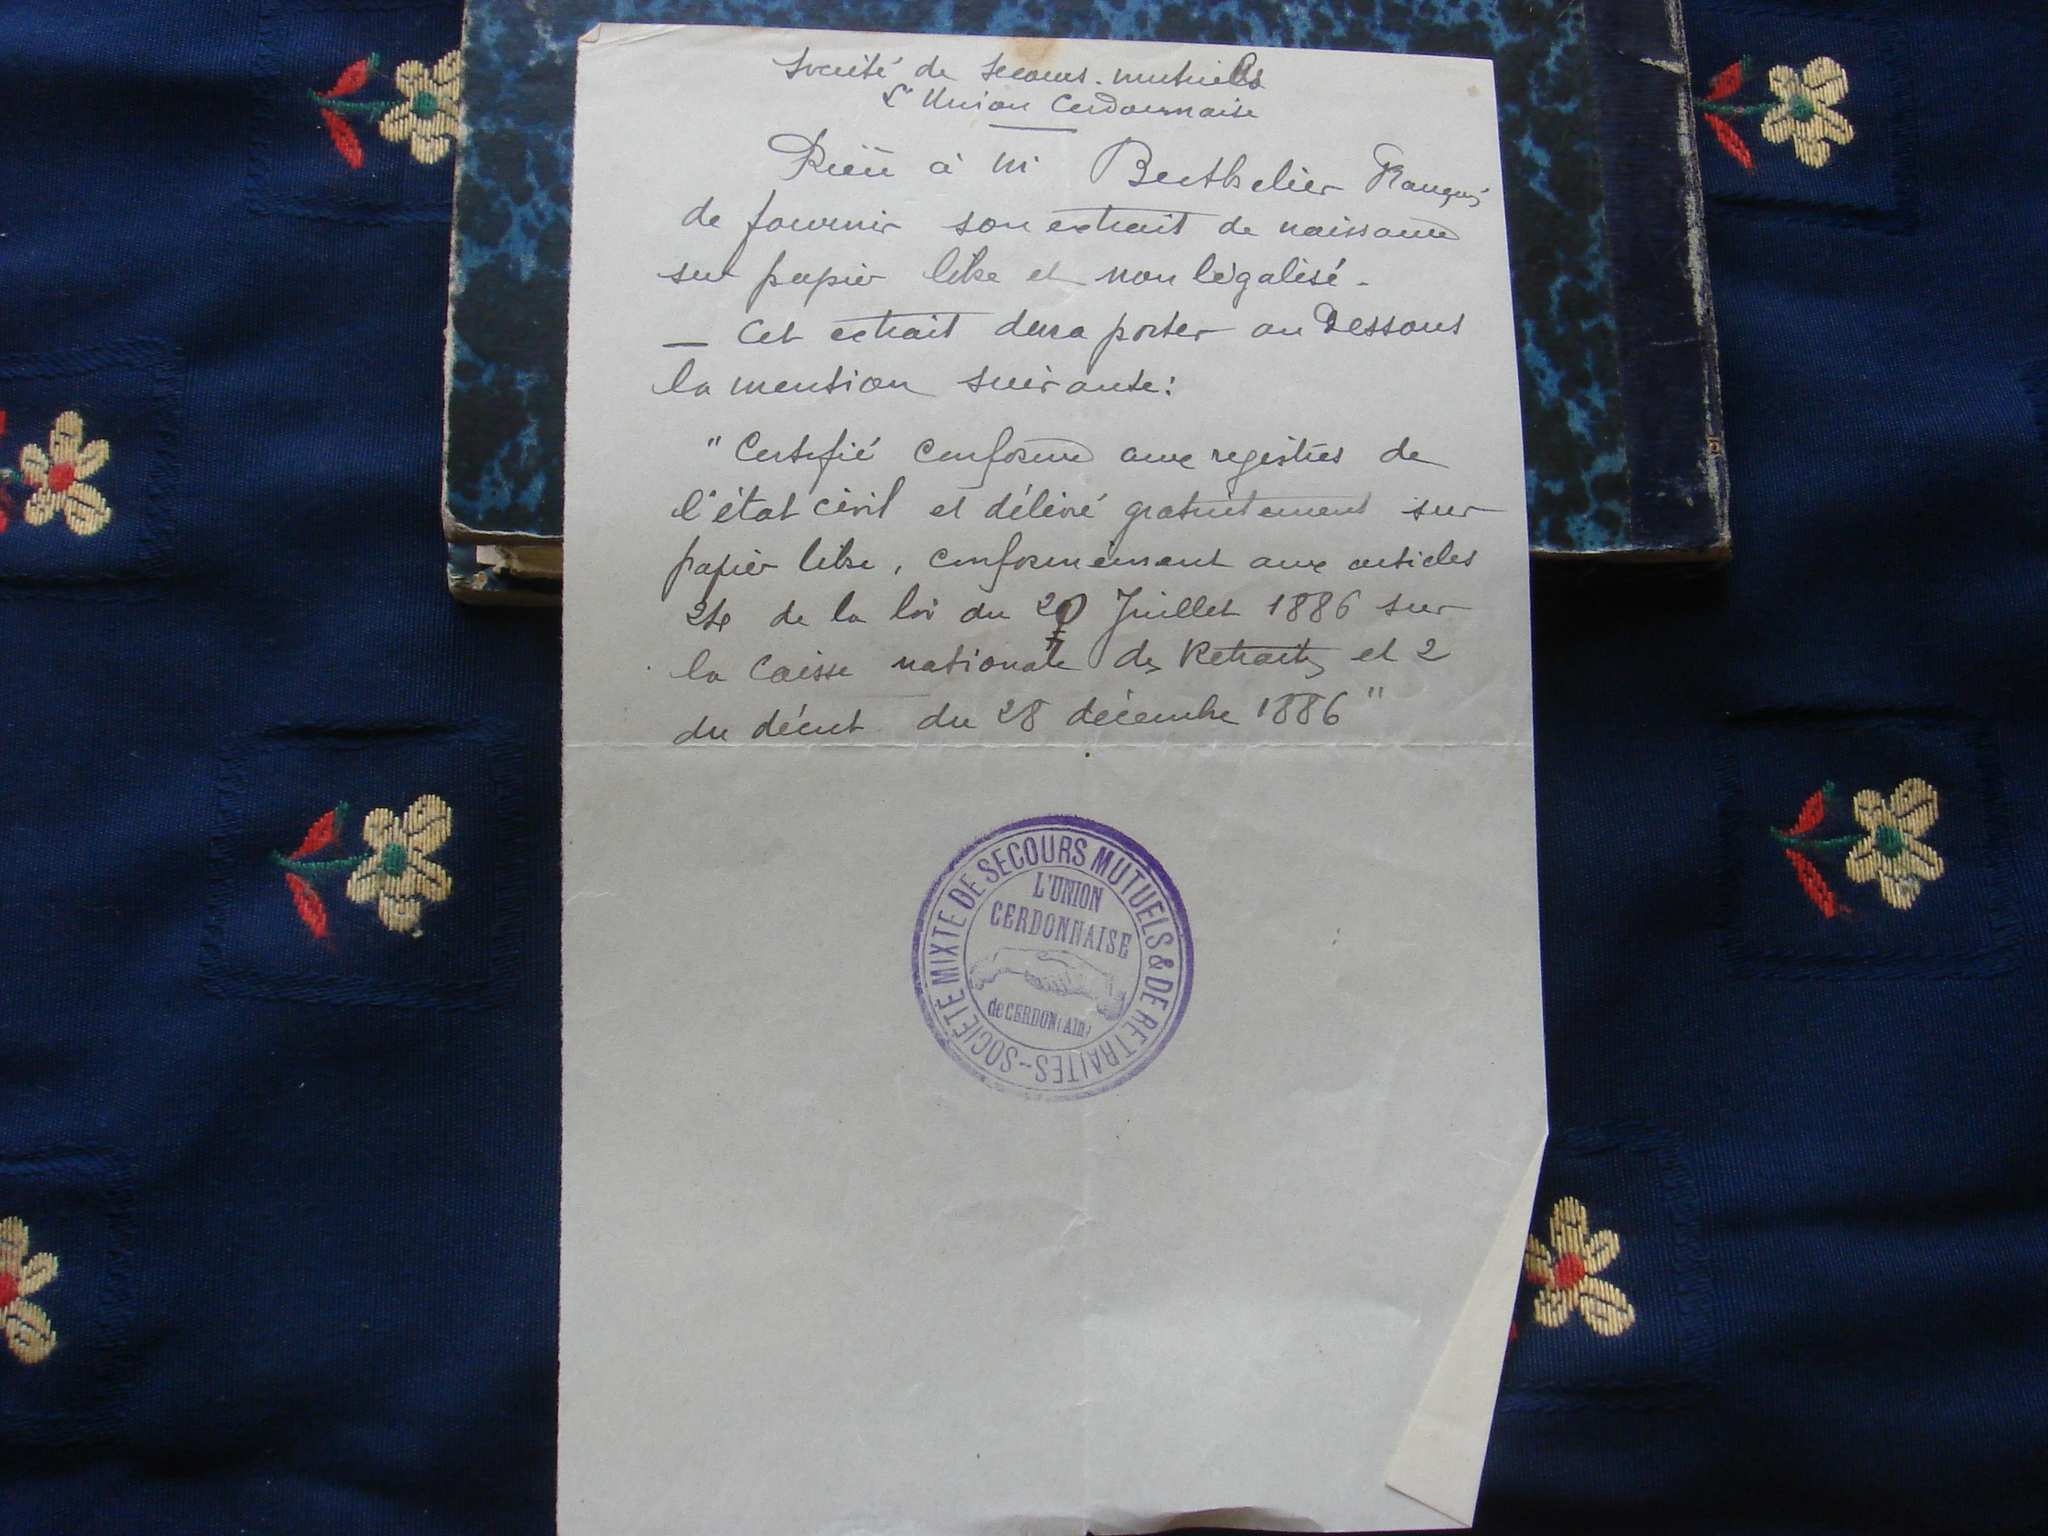 Société de secours mutuels
L'Union Cerdonnaise
Prière à M Berthelier François
de fournir son extrait de naissance
sur papier libre et non légalisé.
— Cet extrait devra porter au Dessous
la mention suivante:
"Certifié conforme aux registres de
l'état civil et délivré gratuitement sur
papier libre, conformément aux articles
24 de la loi du 20 Juillet 1886 sur
la Caisse nationale des Retraites et 2
du décret du 28 décembre 1886"
SOCIÉTÉ MIXTE DE SECOURS MUTUELS & DE RETRAITES-
L'UNION
CERDONNAISE
de CERDON (AIN)